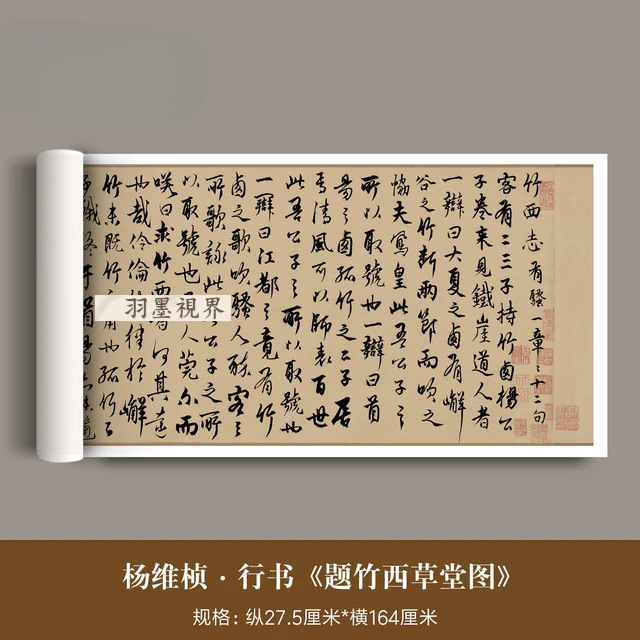 竹西志 有騷一章〻十二句
客有二三子持竹西楊公
子卷來見鐵崖道人者
一辯曰大夏之西有嶰
谷之竹斷兩節而吹之
協夫鳳皇此吾公子之
所以取號也一辯曰首
昜之西孤竹之二子居
焉清風可以師表百世
此吾公子之所以取號也
一辯曰江都之竟有竹
西之歌吹騷人醉客之
所歌詠此吾公子之所
以取號也人莞尔而
咲曰求竹西者何其遠
也哉伶倫律於嶰
竹未既竹之用也孤竹之
子餓終于首昜
羽墨視界
杨维桢·行书《题竹西草堂图》
规格：纵27.5厘米*横164厘米